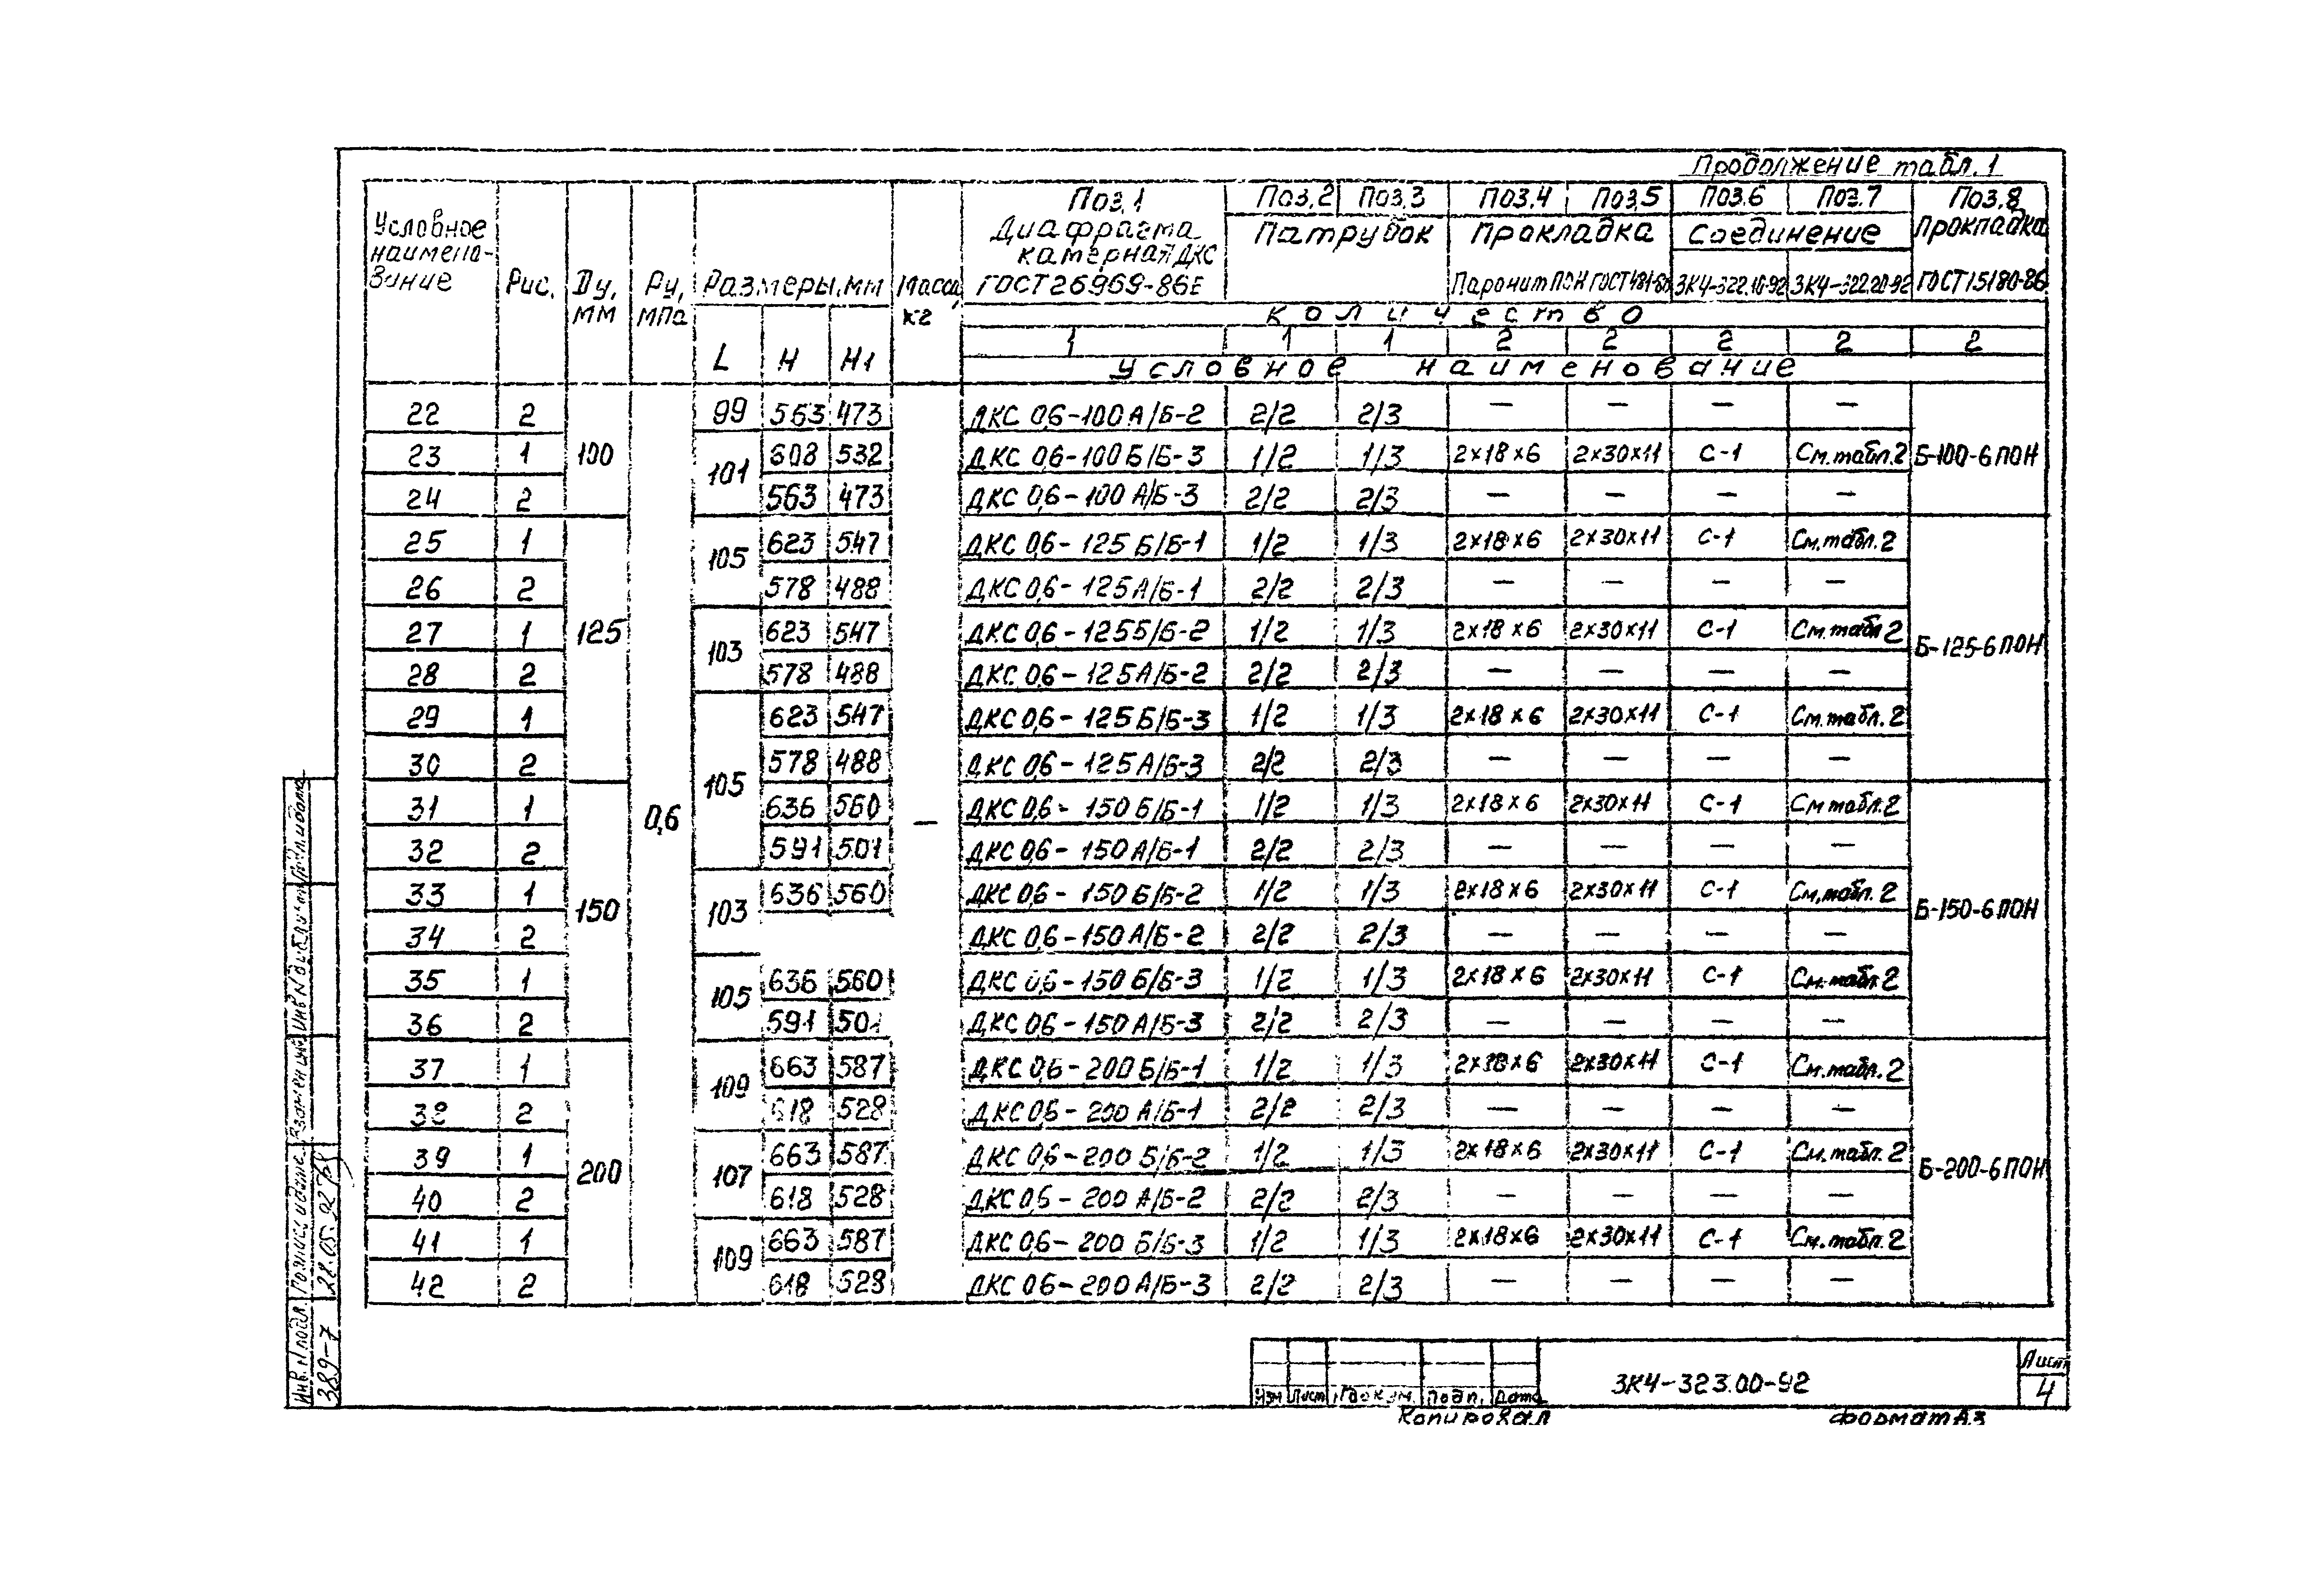 Продолжение табл. 1
Условное наимено-вание | Рис. | Dу, мм | Ру, МПа | Размеры, мм | Масса, кг | Поз. 1 Диафрагма камерная ДКС ГОСТ 26969-86Е | Поз. 2 | Поз. 3 | Поз. 4 | Поз. 5 | Поз. 6 | Поз. 7 | Поз. 8 Прокладка ГОСТ 15180-86
Патрубок | Прокладка | Соединение
Паронит ПОН ГОСТ 481-80 | ЗК4-322.10-92 | ЗК4-322.20-92
Количество
L | H | H1 | 1 | 1 | 1 | 2 | 2 | 2 | 2 | 2
Условное наименование
22 | 2 | 100 | 0,6 | 99 | 563 | 473 | — | ДКС 0,6-100А/Б-2 | 2/2 | 2/3 | — | — | — | — | Б-100-6 ПОН
23 | 1 | 101 | 608 | 532 | ДКС 0,6-100Б/Б-3 | 1/2 | 1/3 | 2×18×6 | 2×30×11 | С-1 | См. табл. 2
24 | 2 | 563 | 473 | ДКС 0,6-100А/Б-3 | 2/2 | 2/3 | — | — | — | —
25 | 1 | 125 | 105 | 623 | 547 | ДКС 0,6-125Б/Б-1 | 1/2 | 1/3 | 2×18×6 | 2×30×11 | С-1 | См. табл. 2 | Б-125-6 ПОН
26 | 2 | 578 | 488 | ДКС 0,6-125А/Б-1 | 2/2 | 2/3 | — | — | — | —
27 | 1 | 103 | 623 | 547 | ДКС 0,6-125Б/Б-2 | 1/2 | 1/3 | 2×18×6 | 2×30×11 | С-1 | См. табл 2
28 | 2 | 578 | 488 | ДКС 0,6-125А/Б-2 | 2/2 | 2/3 | — | — | — | —
29 | 1 | 105 | 623 | 547 | ДКС 0,6-125Б/Б-3 | 1/2 | 1/3 | 2×18×6 | 2×30×11 | С-1 | См. табл. 2
30 | 2 | 578 | 488 | ДКС 0,6-125А/Б-3 | 2/2 | 2/3 | — | — | — | —
31 | 1 | 150 | 636 | 560 | ДКС 0,6-150Б/Б-1 | 1/2 | 1/3 | 2×18×6 | 2×30×11 | С-1 | См табл. 2 | Б-150-6 ПОН
32 | 2 | 591 | 501 | ДКС 0,6-150А/Б-1 | 2/2 | 2/3 | — | — | — | —
33 | 1 | 103 | 636 | 560 | ДКС 0,6-150Б/Б-2 | 1/2 | 1/3 | 2×18×6 | 2×30×11 | С-1 | См. табл. 2
34 | 2 | ДКС 0,6-150А/Б-2 | 2/2 | 2/3 | — | — | — | —
35 | 1 | 105 | 636 | 560 | ДКС 0,6-150Б/Б-3 | 1/2 | 1/3 | 2×18×6 | 2×30×11 | С-1 | См. табл. 2
36 | 2 | 591 | 501 | ДКС 0,6-150А/Б-3 | 2/2 | 2/3 | — | — | — | —
37 | 1 | 200 | 109 | 663 | 587 | ДКС 0,6-200Б/Б-1 | 1/2 | 1/3 | 2×18×6 | 2×30×11 | С-1 | См. табл. 2 | Б-200-6 ПОН
38 | 2 | 618 | 528 | ДКС 0,6-200А/Б-1 | 2/2 | 2/3 | — | — | — | —
39 | 1 | 107 | 663 | 587 | ДКС 0,6-200Б/Б-2 | 1/2 | 1/3 | 2×18×6 | 2×30×11 | С-1 | См. табл. 2
40 | 2 | 618 | 528 | ДКС 0,6-200А/Б-2 | 2/2 | 2/3 | — | — | — | —
41 | 1 | 109 | 663 | 587 | ДКС 0,6-200Б/Б-3 | 1/2 | 1/3 | 2×18×6 | 2×30×11 | С-1 | См. табл. 2
42 | 2 | 618 | 528 | ДКС 0,6-200А/Б-3 | 2/2 | 2/3 | — | — | — | —
Инв. N подл. | Подпись и дата | Взамен инв | Инв N дубл | Подп. и дата
389-7 | 28.05.92
Изм | Лист | N докум. | Подп. | Дата
ЗК4-323.00-92
Лист
4
Копировал
Формат А3